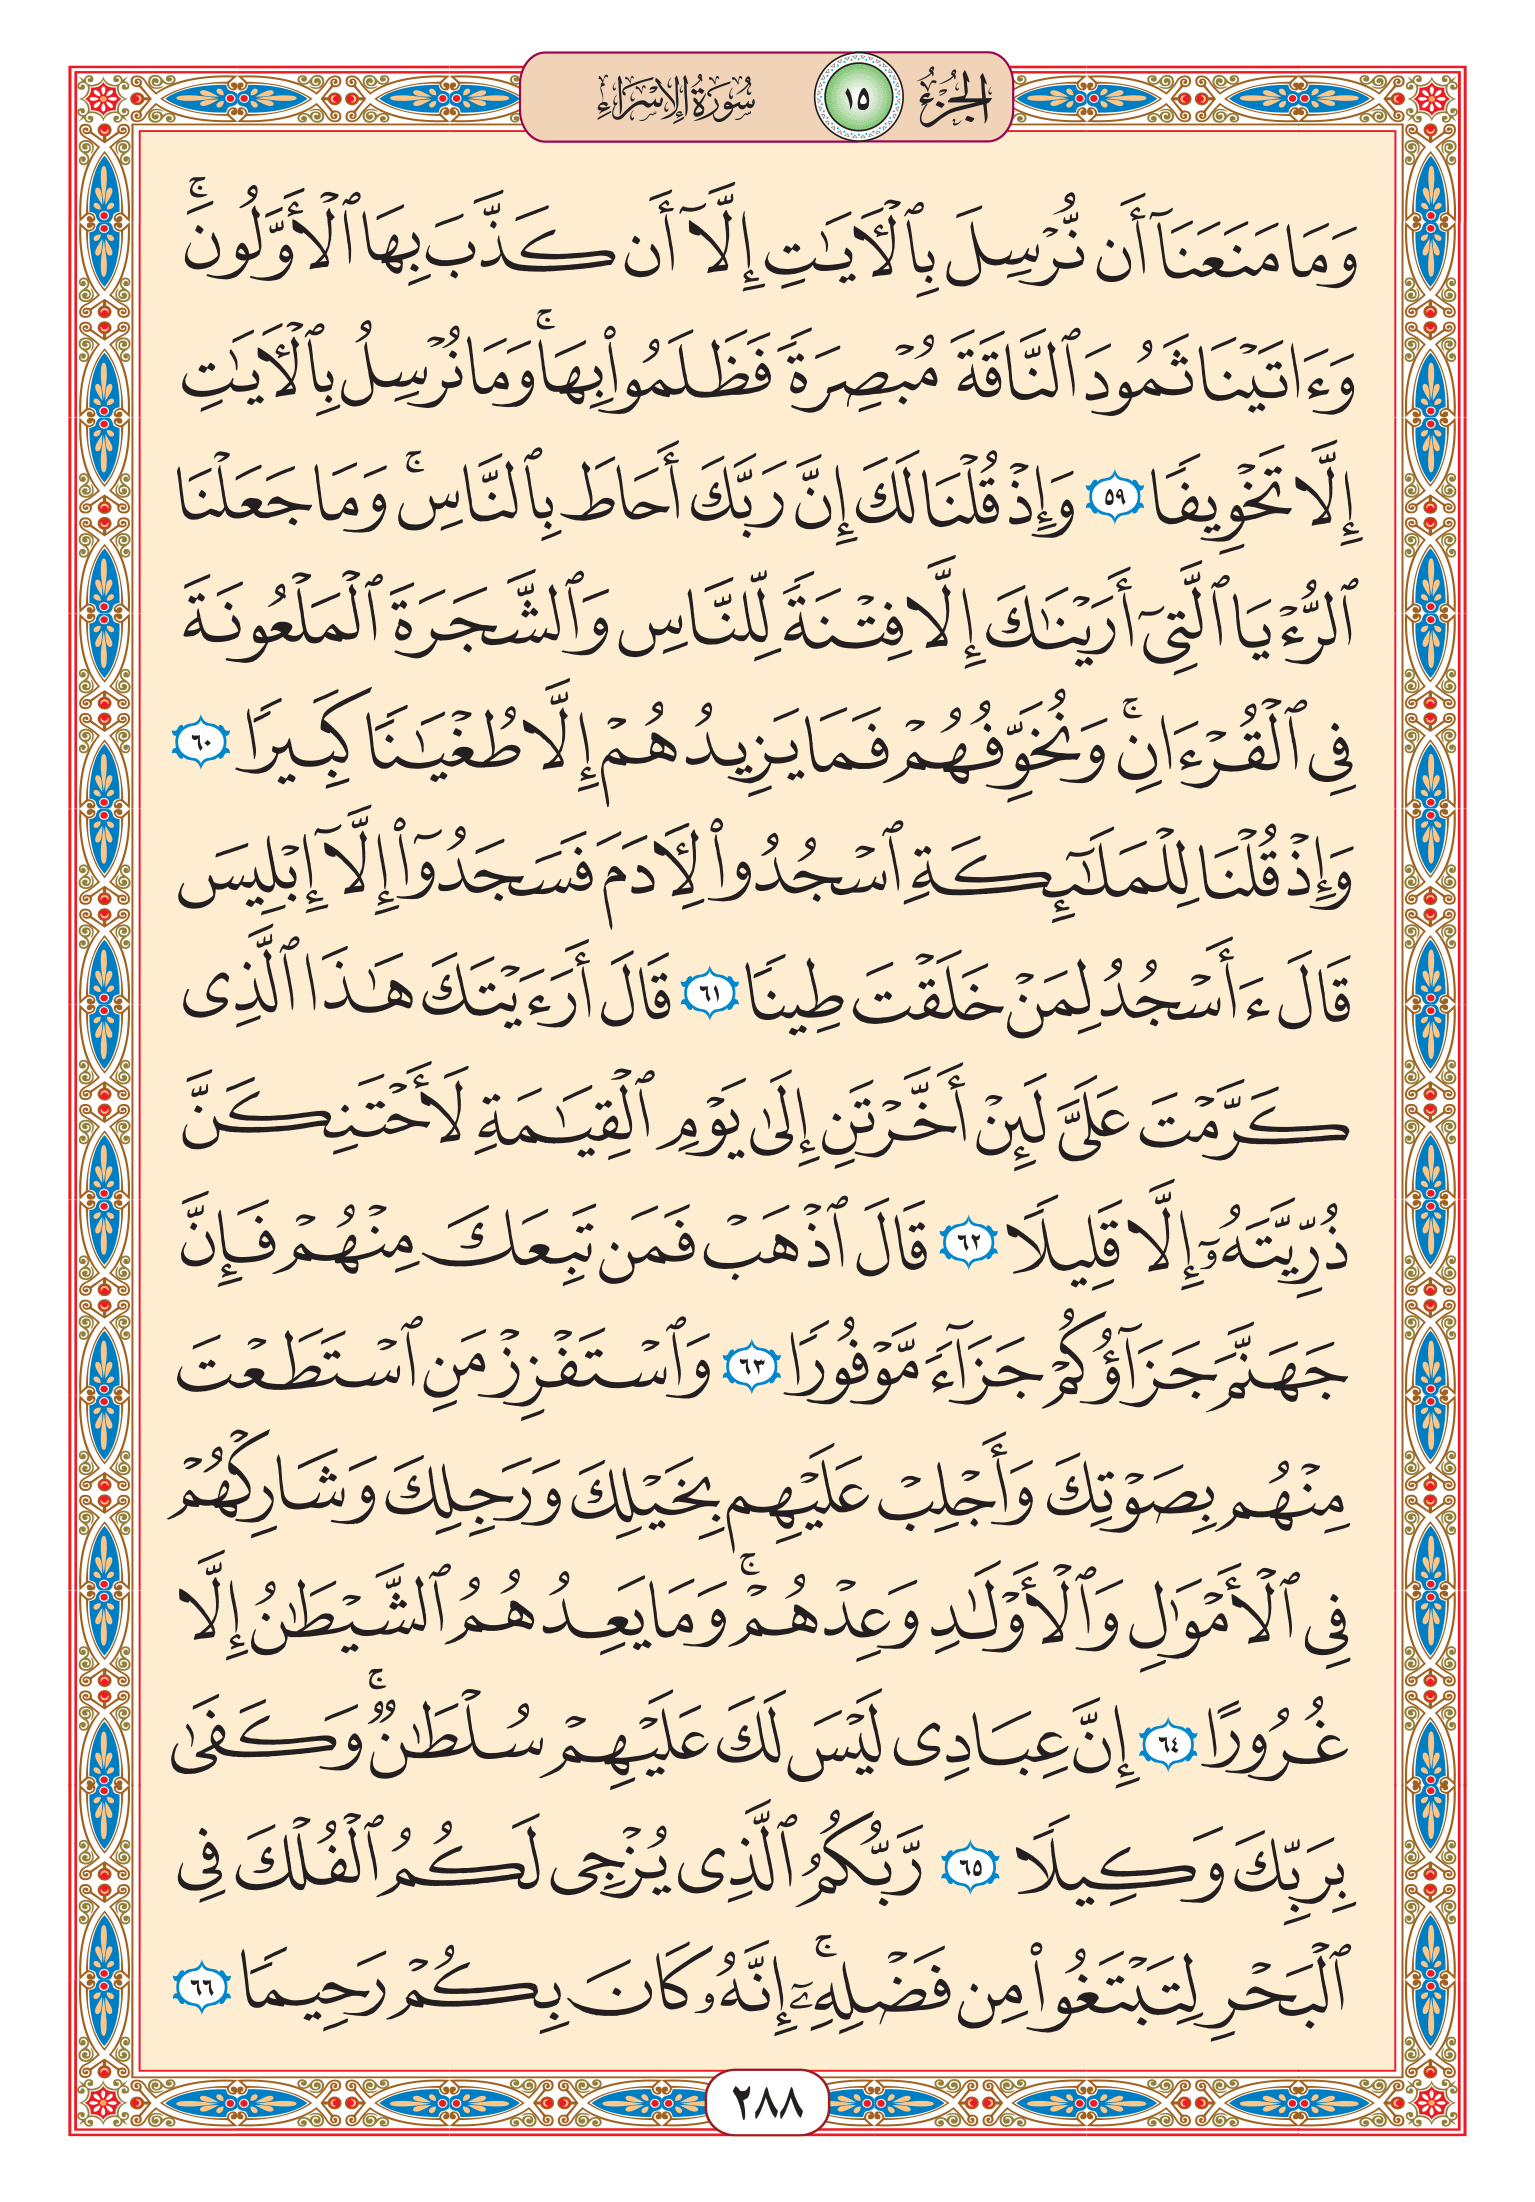 الجزء ١٥ سورة الإسراء
وَمَا مَنَعَنَآ أَن نُّرْسِلَ بِٱلْأَيَـٰتِ إِلَّآ أَن كَذَّبَ بِهَا ٱلْأَوَّلُونَ ۚ
وَءَاتَيْنَا ثَمُودَ ٱلنَّاقَةَ مُبْصِرَةً فَظَلَمُوا۟ بِهَا ۚ وَمَا نُرْسِلُ بِٱلْأَيَـٰتِ
إِلَّا تَخْوِيفًا ٥٩ وَإِذْ قُلْنَا لَكَ إِنَّ رَبَّكَ أَحَاطَ بِٱلنَّاسِ ۚ وَمَا جَعَلْنَا
ٱلرُّءْيَا ٱلَّتِىٓ أَرَيْنَـٰكَ إِلَّا فِتْنَةً لِّلنَّاسِ وَٱلشَّجَرَةَ ٱلْمَلْعُونَةَ
فِى ٱلْقُرْءَانِ ۚ وَنُخَوِّفُهُمْ فَمَا يَزِيدُهُمْ إِلَّا طُغْيَـٰنًا كَبِيرًا ٦٠
وَإِذْ قُلْنَا لِلْمَلَـٰٓئِكَةِ ٱسْجُدُوا۟ لِـَٔادَمَ فَسَجَدُوٓا۟ إِلَّآ إِبْلِيسَ
قَالَ ءَأَسْجُدُ لِمَنْ خَلَقْتَ طِينًا ٦١ قَالَ أَرَءَيْتَكَ هَـٰذَا ٱلَّذِى
كَرَّمْتَ عَلَىَّ لَئِنْ أَخَّرْتَنِ إِلَىٰ يَوْمِ ٱلْقِيَـٰمَةِ لَأَحْتَنِكَنَّ
ذُرِّيَّتَهُۥٓ إِلَّا قَلِيلًا ٦٢ قَالَ ٱذْهَبْ فَمَن تَبِعَكَ مِنْهُمْ فَإِنَّ
جَهَنَّمَ جَزَآؤُكُمْ جَزَآءً مَّوْفُورًا ٦٣ وَٱسْتَفْزِزْ مَنِ ٱسْتَطَعْتَ
مِنْهُم بِصَوْتِكَ وَأَجْلِبْ عَلَيْهِم بِخَيْلِكَ وَرَجِلِكَ وَشَارِكْهُمْ
فِى ٱلْأَمْوَٰلِ وَٱلْأَوْلَـٰدِ وَعِدْهُمْ ۚ وَمَا يَعِدُهُمُ ٱلشَّيْطَـٰنُ إِلَّا
غُرُورًا ٦٤ إِنَّ عِبَادِى لَيْسَ لَكَ عَلَيْهِمْ سُلْطَـٰنٌ ۚ وَكَفَىٰ
بِرَبِّكَ وَكِيلًا ٦٥ رَّبُّكُمُ ٱلَّذِى يُزْجِى لَكُمُ ٱلْفُلْكَ فِى
ٱلْبَحْرِ لِتَبْتَغُوا۟ مِن فَضْلِهِۦٓ ۚ إِنَّهُۥ كَانَ بِكُمْ رَحِيمًا ٦٦
٢٨٨